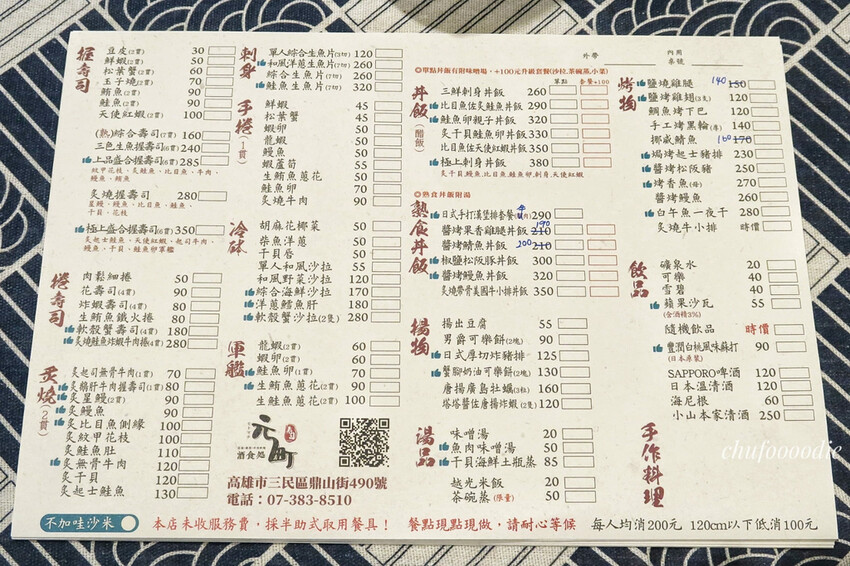 握壽司
豆皮(2貫) 30
鮮蝦(2貫) 50
松葉蟹(2貫) 60
玉子燒(2貫) 70
鮪魚(2貫) 90
鮭魚(2貫) 90
天使紅蝦(2貫) 100
(熟)綜合壽司(7貫) 160
三色生魚握壽司(6貫) 240
上品盛合握壽司(6貫) 285
紋甲花枝、炙鮭魚、比目魚、牛肉、
鰻魚、鮪魚
炙燒握壽司 280
星鰻、鰻魚、比目魚、鮭魚、
干貝、花枝
極上盛合握壽司(6貫) 350
炙起士鮭魚、天使紅蝦、起司牛肉、
鰻魚、干貝、鮭魚卵軍艦
捲壽司
肉鬆細捲 50
花壽司(4貫) 90
炸蝦壽司(4貫) 80
生鮪魚鐵火捲 80
軟殼蟹壽司(4貫) 180
炙燒鮭魚炸蝦牛肉捲(4貫) 280
炙燒(2貫)
炙起司無骨牛肉(1貫) 70
炙鵝肝牛肉握壽司(1貫) 80
炙星鰻(2貫) 90
炙鰻魚 90
炙比目魚側緣 100
炙紋甲花枝 100
炙鮭魚肚 110
炙無骨牛肉 120
炙干貝 120
炙起士鮭魚 130
刺身
單人綜合生魚片(3切) 120
和風洋蔥生魚片(7切) 260
綜合生魚片(7切) 260
鮭魚生魚片(7切) 320
手捲(1貫)
鮮蝦 45
松葉蟹 45
蝦卵 50
龍蝦 50
鰻魚 50
蝦蘆筍 50
生鮪魚蔥花 50
鮭魚卵 70
炙燒牛肉 90
冷缽
胡麻花椰菜 50
柴魚洋蔥 50
干貝唇 50
單人和風沙拉 55
和風野菜沙拉 120
綜合海鮮沙拉 170
洋蔥鱈魚肝 180
軟殼蟹沙拉(2隻) 280
軍艦
龍蝦(2貫) 60
蝦卵(2貫) 60
鮭魚卵(1貫) 70
生鮪魚蔥花(2貫) 90
生鮭魚蔥花(2貫) 100
元町
酒食処
高雄市三民區鼎山街490號
電話：07-383-8510
外帶
內用
桌號
◎單點丼飯有附味噌湯，+100元升級套餐(沙拉.茶碗蒸.小菜)
單點 套餐+100
丼飯(醋飯)
三鮮刺身丼飯 260
比目魚佐炙鮭魚丼飯 290
鮭魚卵親子丼飯 320
炙干貝鮭魚卵丼飯 330
比目魚佐天使紅蝦丼飯 350
極上刺身丼飯 380
炙干貝,鰻魚,比目魚,鮭魚卵,刺身,天使紅蝦
◎熟食丼飯附湯
熟食丼飯
日式手打漢堡排套餐 290
醬烤果香雞腿丼飯 210 190
醬烤鯖魚丼飯 210 200
椒鹽松阪豚丼飯 300
醬烤鰻魚丼飯 320
炙燒帶骨美國牛小排丼飯 350
揚物
揚出豆腐 55
男爵可樂餅(2塊) 90
日式厚切炸豬排 125
蟹腳奶油可樂餅(2塊) 130
唐揚廣島牡蠣(3粒) 160
塔塔醬佐唐揚炸蝦(2隻) 120
湯品
味噌湯 20
魚肉味噌湯 50
干貝海鮮土瓶蒸 85
越光米飯 20
茶碗蒸(限量) 50
烤物
鹽燒雞腿 140 150
鹽烤雞翅(3支) 120
鯛魚烤下巴 120
手工烤黑輪(季) 140
挪威鯖魚 160 170
焗烤起士豬排 230
醬烤松阪豬 250
烤香魚(母) 270
醬烤鰻魚 260
白午魚一夜干 280
炙燒牛小排 時價
飲品
礦泉水 20
可樂 40
雪碧 40
蘋果沙瓦 55
(含酒精3%)
隨機飲品 時價
豐潤白桃風味蘇打 90
(日本原裝)
SAPPORO啤酒 120
日本溫清酒 120
海尼根 60
小山本家清酒 250
手作料理
chufoooodie
不加哇沙米
本店未收服務費，採半助式取用餐具！ 餐點現點現做，請耐心等候 每人均消200元 120cm以下低消100元